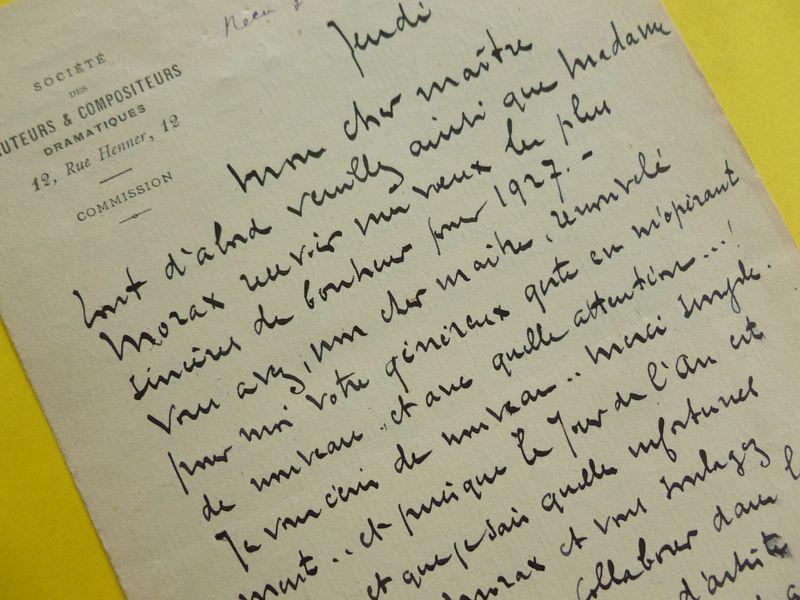 Reçu
SOCIÉTÉ
DES
AUTEURS & COMPOSITEURS
DRAMATIQUES
12, Rue Henner, 12
COMMISSION
Jeudi
Mon cher maître
tout d'abord veuillez ainsi que Madame
Morax recevoir mes vœux les plus
sincères de bonheur pour 1927.-
Vous avez, mon cher maître, renouvelé
pour moi votre généreux geste en m'opérant
de nouveau.. et avec quelle attention...!
Je vous dis de nouveau.. merci simple-
ment.. et puisque le Jour de l'An est
et que je sais quelles infortunes
Morax et vous soulagez
collaborer dans l
d'artiste